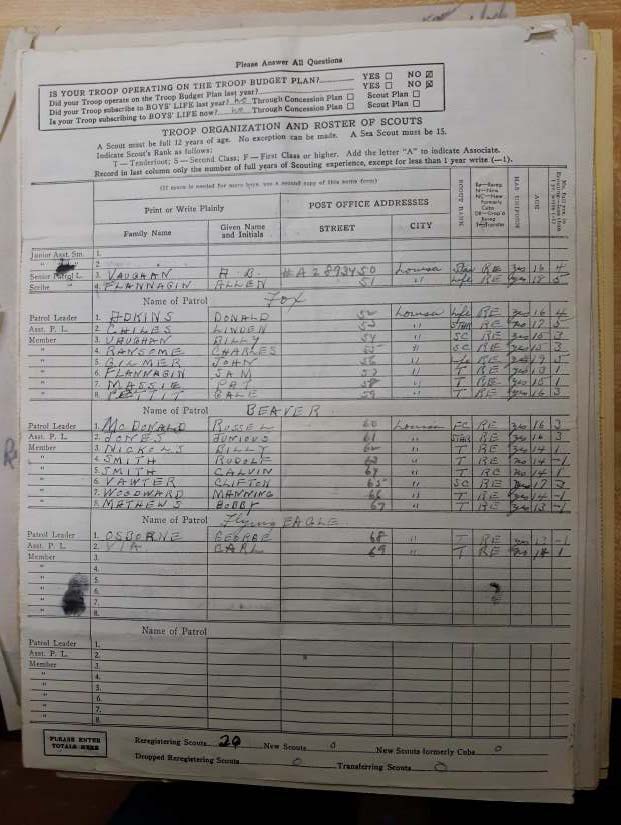 Please Answer All Questions
IS YOUR TROOP OPERATING ON THE TROOP BUDGET PLAN? YES ☐ NO ☒
Did your Troop operate on the Troop Budget Plan last year? YES ☐ NO ☒
Did your Troop subscribe to BOYS' LIFE last year? No Through Concession Plan ☐ Scout Plan ☐
Is your Troop subscribing to BOYS' LIFE now? No Through Concession Plan ☐ Scout Plan ☐
TROOP ORGANIZATION AND ROSTER OF SCOUTS
A Scout must be full 12 years of age. No exception can be made. A Sea Scout must be 15.
Indicate Scout's Rank as follows:
T—Tenderfoot; S—Second Class; F—First Class or higher. Add the letter "A" to indicate Associate.
Record in last column only the number of full years of Scouting experience, except for less than 1 year write (—1).
(If more is needed for more boys use a second copy of this same form)
Print or Write Plainly POST OFFICE ADDRESSES SCOUT RANK HAS UNIFORM AGE
Family Name Given Name and Initials STREET CITY
Junior Asst. Sm. 1.
" 2.
Senior Patrol L. 3. VAUGHAN A. B. #A2893450 Louisa Star RE yes 16 4
Scribe 4. FLANNAGIN ALLEN 51 " Life RE yes 18 5
Name of Patrol Fox
Patrol Leader 1. ADKINS DONALD 52 Louisa Life RE yes 16 4
Asst. P. L. 2. CHILES LINDEN 53 " STAR RE no 17 5
Member 3. VAUGHAN BILLY 54 " SC RE yes 15 3
" 4. RANSOME CHARLES 55 " SC RE yes 15 3
" 5. GILMER JOHN 56 " Life RE 5
" 6. FLANNAGIN SAM 57 " T RE yes 13 1
" 7. MASSIE PAT 58 " T RE yes 15 1
" 8. PETTIT GALE 59 " T RE yes 16 3
Name of Patrol BEAVER
Patrol Leader 1. McDONALD RUSSEL 60 Louisa FC RE yes 16 3
Asst. P. L. 2. JONES JUNIOUS 61 " STAR RE yes 16 3
Member 3. NICKOLS BILLY 62 " T RE yes 14 1
" 4. SMITH RUDOLF 63 " T RE no 14 -1
" 5. SMITH CALVIN 64 " T RE no 14 1
" 6. VAWTER CLIFTON 65 " SC RE 17 2
" 7. WOODWARD MANNING 66 " T RE yes 14 -1
" 8. MATHEWS BOBBY 67 " T RE yes 13 -1
Name of Patrol Flying EAGLE
Patrol Leader 1. OSBORNE GEORGE 68 " T RE yes 13 -1
Asst. P. L. 2. VIA CARL 69 " T RE no 14 1
Member 3.
" 4.
" 5.
" 6.
" 7.
8.
Name of Patrol
Patrol Leader 1.
Asst. P. L. 2.
Member 3.
" 4.
" 5.
" 6.
" 7.
" 8.
PLEASE ENTER TOTALS HERE
Reregistering Scouts 20 New Scouts 0 New Scouts formerly Cubs 0
Dropped Reregistering Scouts 0 Transferring Scouts 0